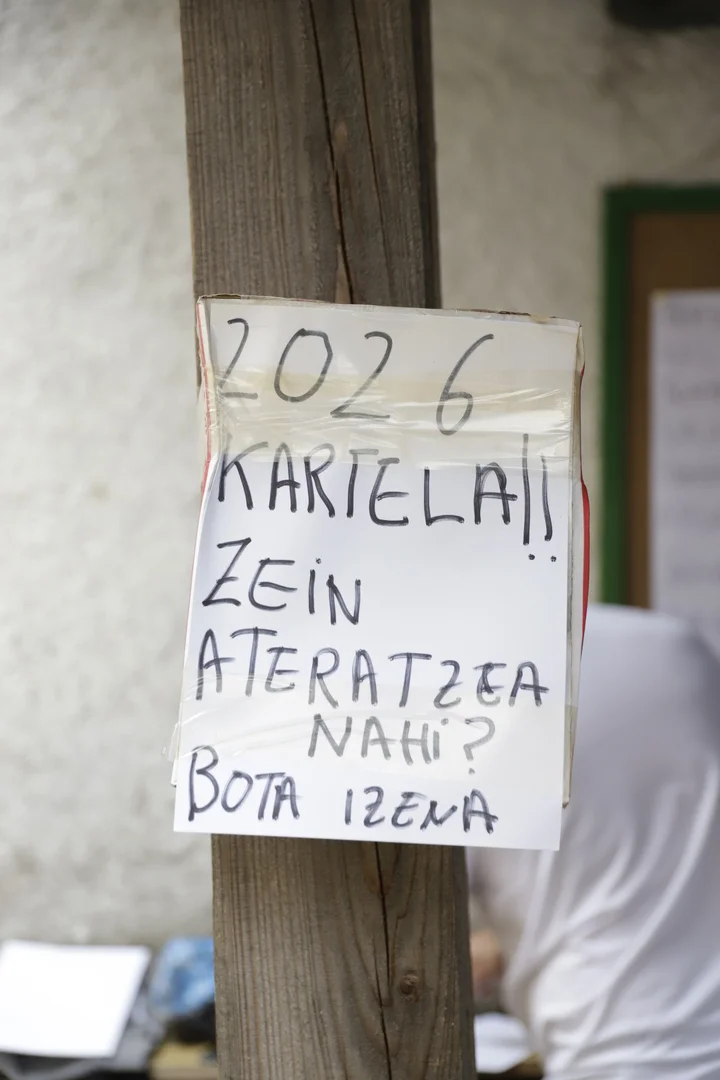 2026
KARTELA!!
ZEIN
ATERATZEA
NAHi?
BOTA IZENA